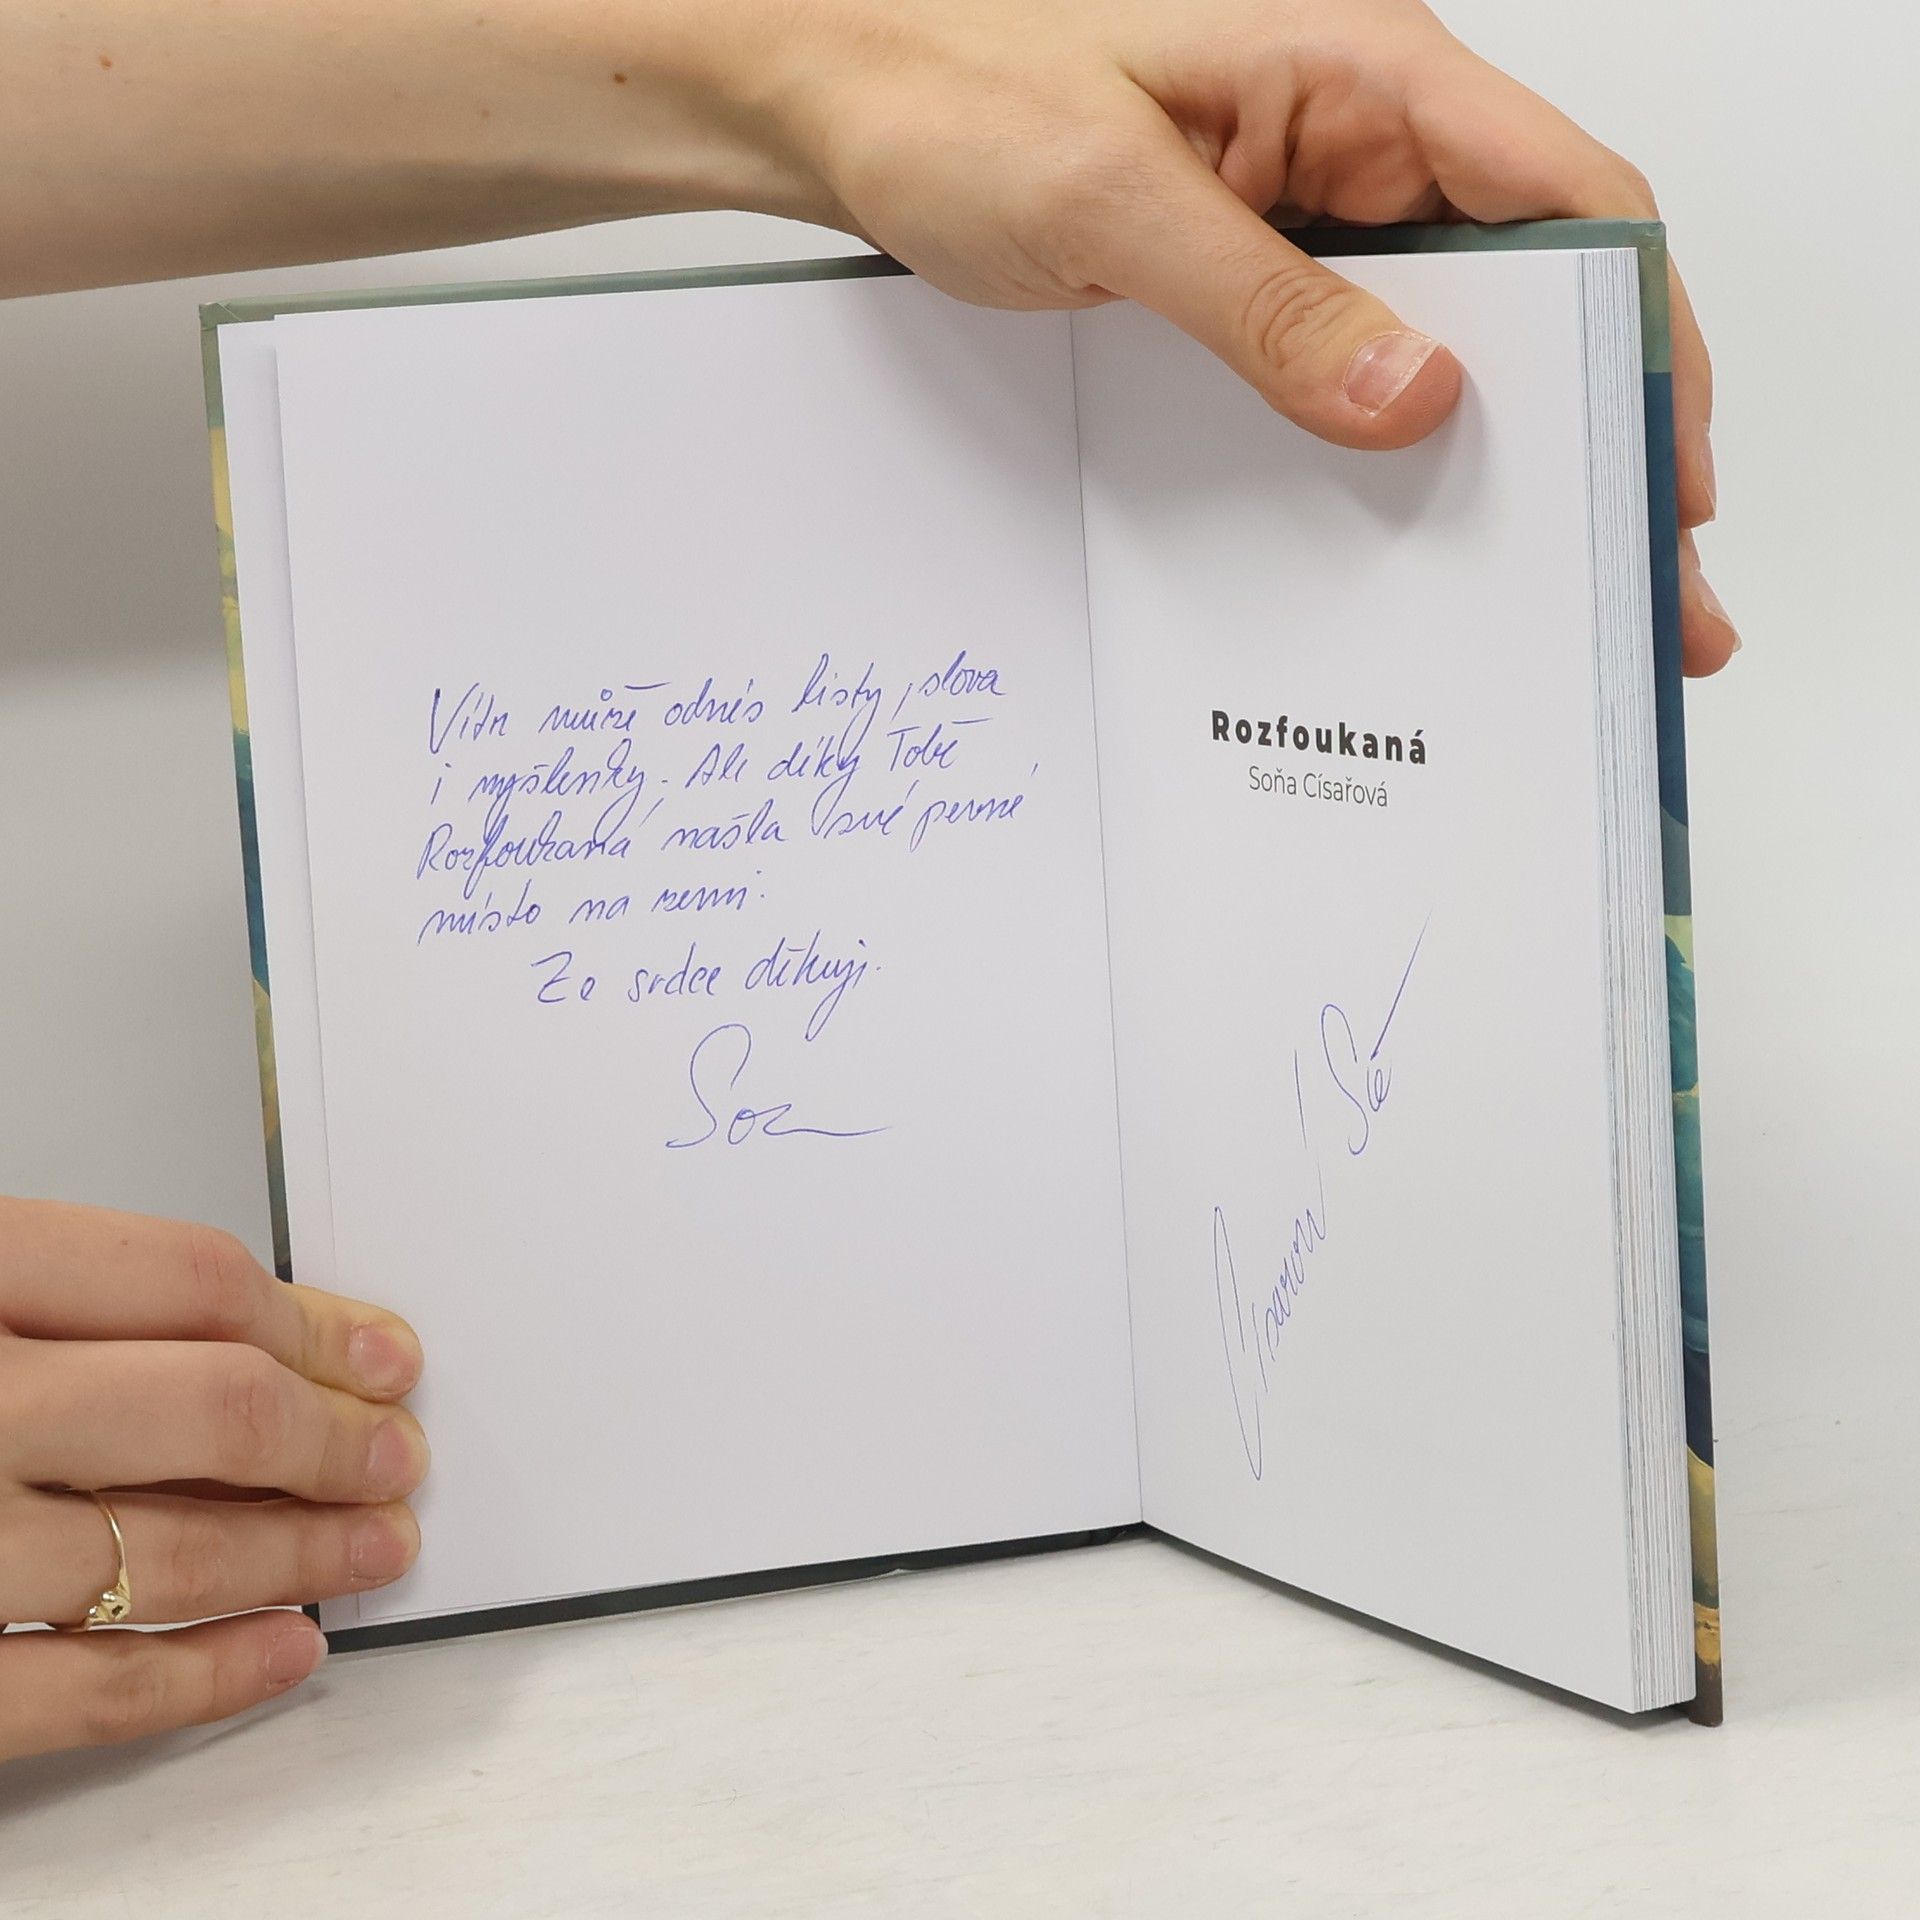 Vítr může odnés listy, slova
i myšlenky. Ale díky Tobě
Rozfoukaná našla své pevné
místo na zemi.
Ze srdce děkuji.
Soňa
Rozfoukaná
Soňa Císařová
Císařová Soňa